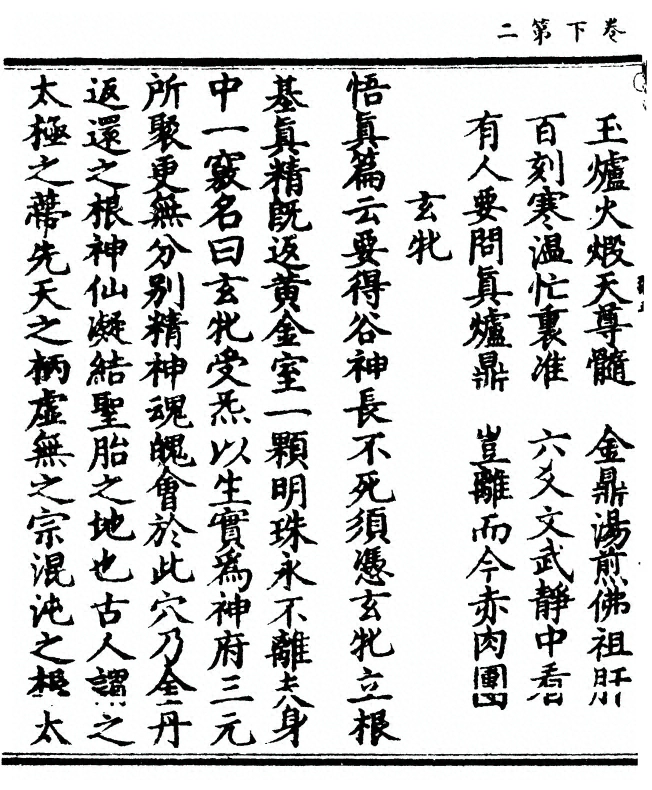 卷下第二
玉爐火煅天尊髓　金鼎湯煎佛祖肝
百刻寒温忙裏准　六爻文武靜中看
有人要問眞爐鼎　豈離而今赤肉團
玄牝
悟眞篇云要得谷神長不死須憑玄牝立根
基眞精旣返黄金室一顆明珠永不離夫身
中一竅名曰玄牝受炁以生實爲神府三元
所聚更無分别精神魂魄會於此穴乃金丹
返還之根神仙凝結聖胎之地也古人謂之
太極之蔕先天之柄虛無之宗混沌之根太